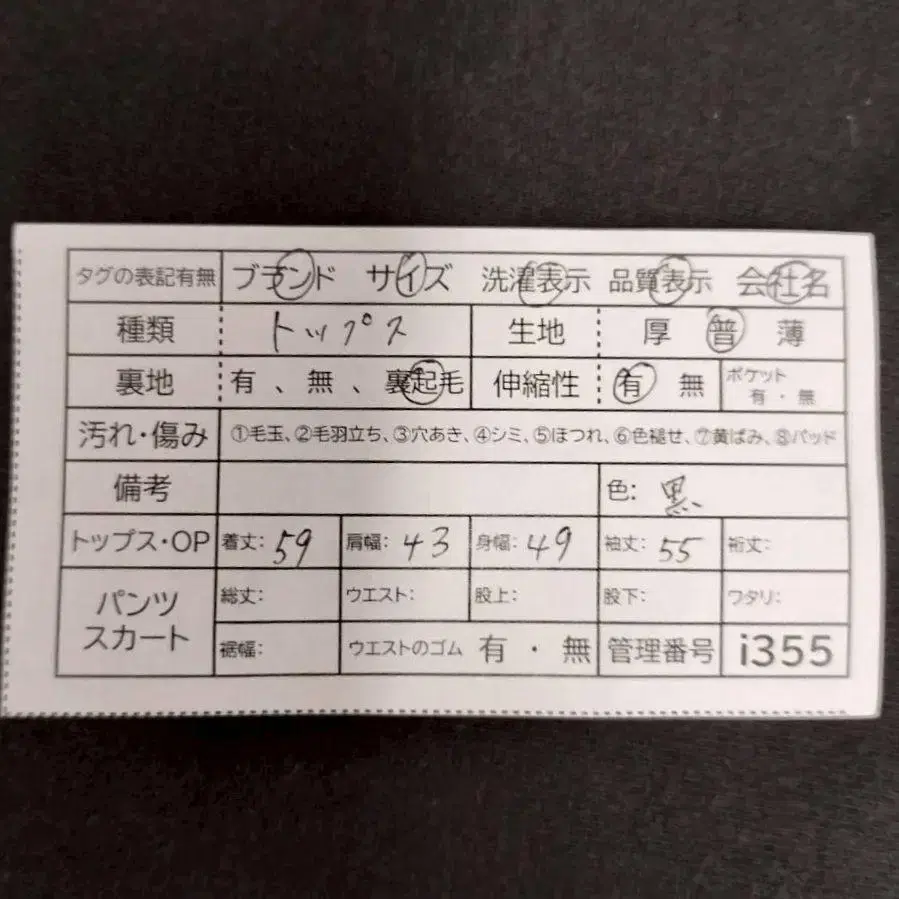 タグの表記有無 ブランド サイズ 洗濯表示 品質表示 会社名
種類 トップス 生地 厚 普 薄
裏地 有、無、裏起毛 伸縮性 有 無 ポケット 有・無
汚れ・傷み ①毛玉、②毛羽立ち、③穴あき、④シミ、⑤ほつれ、⑥色褪せ、⑦黄ばみ、⑧パッド
備考 色: 黒
トップス・OP 着丈: 59 肩幅: 43 身幅: 49 袖丈: 55 裄丈:
パンツ スカート 総丈: ウエスト: 股上: 股下: ワタリ:
裾幅: ウエストのゴム 有・無 管理番号 i355